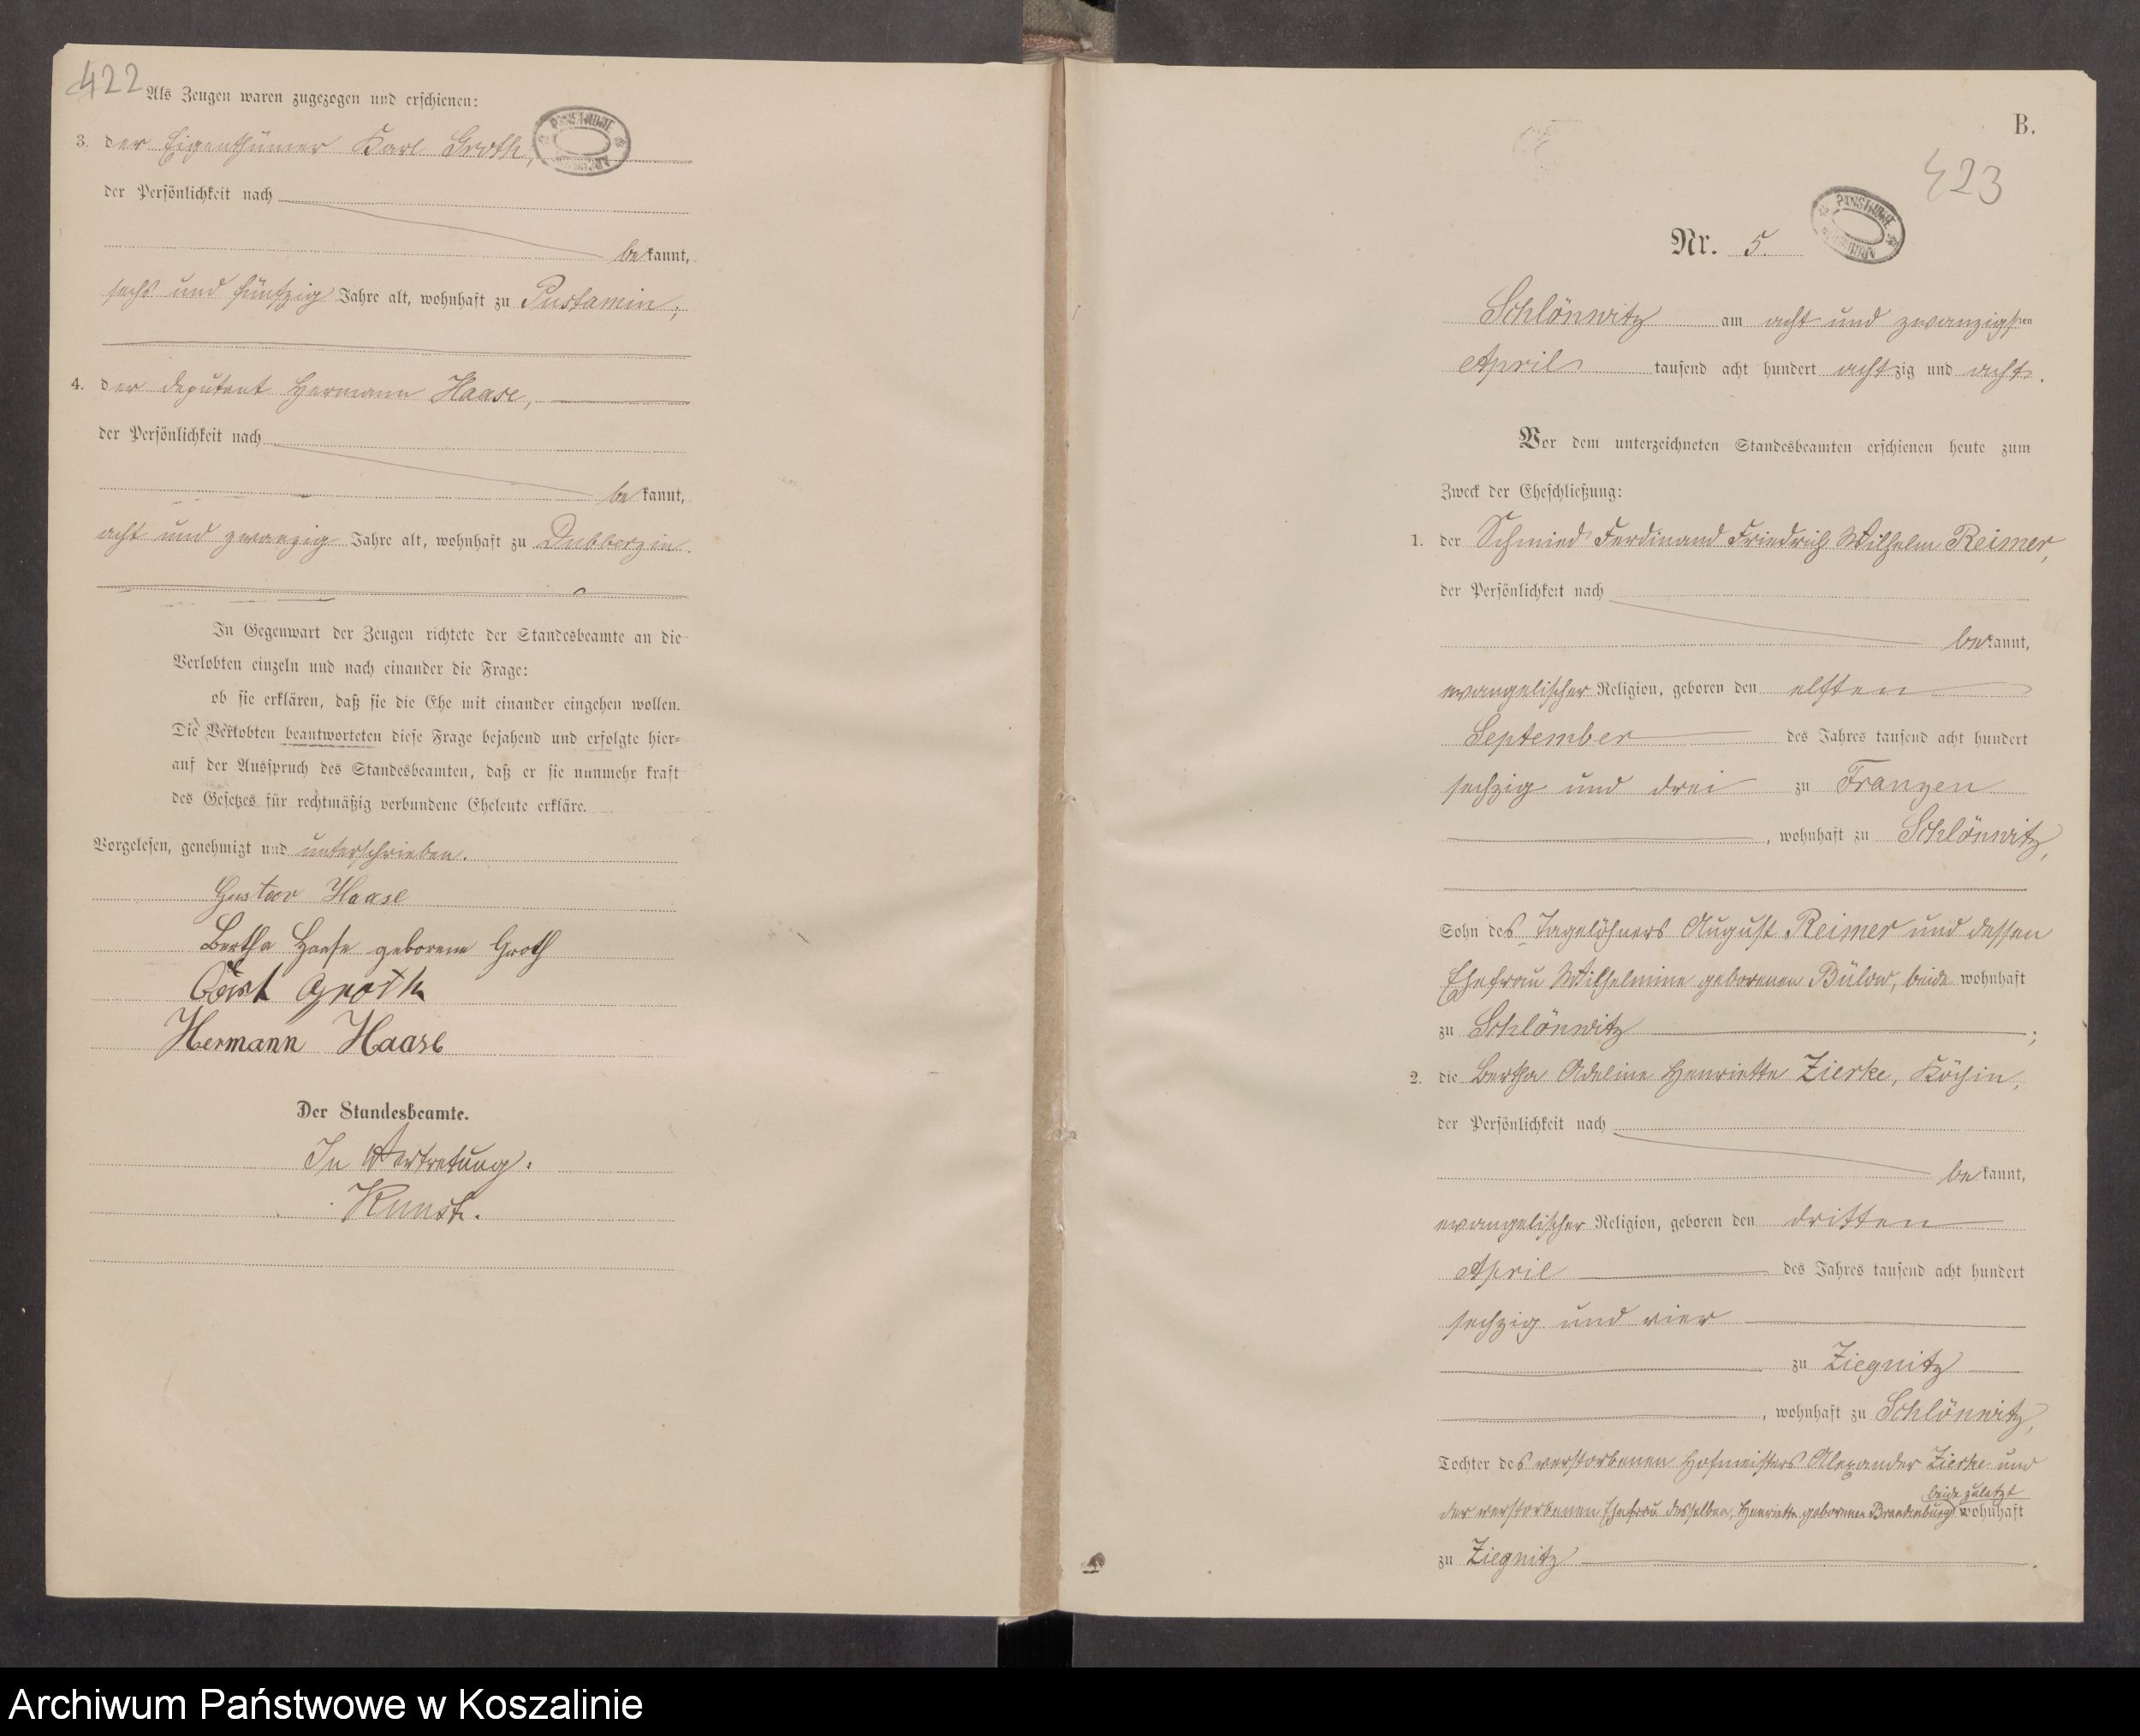 422
Als Zeugen waren zugezogen und erschienen:
3. der Eigenthümer Karl Groth,
der Persönlichkeit nach
bekannt,
sechs und fünfzig Jahre alt, wohnhaft zu Pustamin;
4. der Deputant Hermann Haase,
der Persönlichkeit nach
bekannt,
acht und zwanzig Jahre alt, wohnhaft zu Dubberzin.
In Gegenwart der Zeugen richtete der Standesbeamte an die
Verlobten einzeln und nach einander die Frage:
ob sie erklären, daß sie die Ehe mit einander eingehen wollen.
Die Verlobten beantworteten diese Frage bejahend und erfolgte hier-
auf der Ausspruch des Standesbeamten, daß er sie nunmehr kraft
des Gesetzes für rechtmäßig verbundene Eheleute erkläre.
Vorgelesen, genehmigt und unterschrieben.
Gustav Haase
Bertha Haase geborene Groth
Carl Groth
Hermann Haase
Der Standesbeamte.
In Vertretung:
Kunst.
B.
423
Nr. 5.
Schlönwitz am acht und zwanzigsten
April tausend acht hundert achtzig und acht.
Vor dem unterzeichneten Standesbeamten erschienen heute zum
Zweck der Eheschließung:
1. der Schmied Ferdinand Friedrich Wilhelm Reimer,
der Persönlichkeit nach
bekannt,
evangelischer Religion, geboren den elften
September des Jahres tausend acht hundert
sechzig und drei zu Franzen
, wohnhaft zu Schlönwitz,
Sohn des Tagelöhners August Reimer und dessen
Ehefrau Wilhelmine geborenen Bülow, beide wohnhaft
zu Schlönwitz;
2. die Bertha Adeline Henriette Zierke, Köchin,
der Persönlichkeit nach
bekannt,
evangelischer Religion, geboren den dritten
April des Jahres tausend acht hundert
sechzig und vier
zu Ziegnitz
, wohnhaft zu Schlönwitz,
Tochter des verstorbenen Hofmeisters Alexander Zierke und
beide zuletzt
der verstorbenen Ehefrau desselben, Henriette geborenen Brandenburg wohnhaft
zu Ziegnitz.
Archiwum Państwowe w Koszalinie